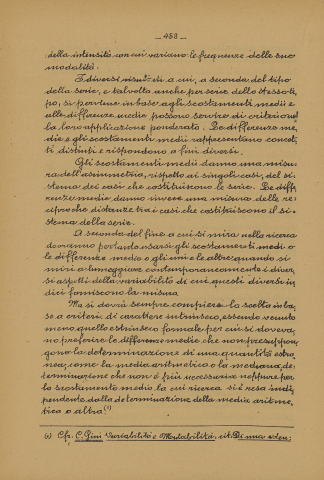 — 453 —
della intensità con cui variano le frequenze delle sue
modalità.
I diversi risultati a cui, a seconda del tipo
della serie, e talvolta anche per serie dello stesso ti-
po, si perviene in base agli scostamenti medii e
alle differenze medie possono servire di criterio nel
la loro applicazione ponderata. Le differenze me
die e gli scostamenti medii rappresentano concet
ti distinti e rispondono a fini diversi.
Gli scostamenti medii danno una misu
ra dell'asimmetria, rispetto ai singoli casi, del si-
stema dei casi che costituiscono le serie. Le diffe
renze medie danno invece una misura delle re
ciproche distanze tra i casi che costituiscono il si-
stema della serie.
A seconda del fine a cui si mira nella ricerca
dovranno pertanto usarsi gli scostamenti medi o
le differenze medie o gli uni e le altre quando si
miri a lumeggiare contemporaneamente i diver
si aspetti della variabilità di cui questi diversi in
dici forniscono la misura.
Ma si dovrà sempre compiere la scelta in ba
se a criteri di carattere intrinseco, essendo venuto
meno quello estrinseco formale per cui si doveva
no preferire le differenze medie che non presuppon
gono la determinazione di una quantità estra
nea, come la media aritmetica o la mediana, de
terminazione che non è più necessaria neppure per
lo scostamento medio la cui ricerca si è resa indi
pendente dalla determinazione della media aritme
tica o altra (1)
(1) Cfr. C. Gini Variabilità e Mutabilità, cit.